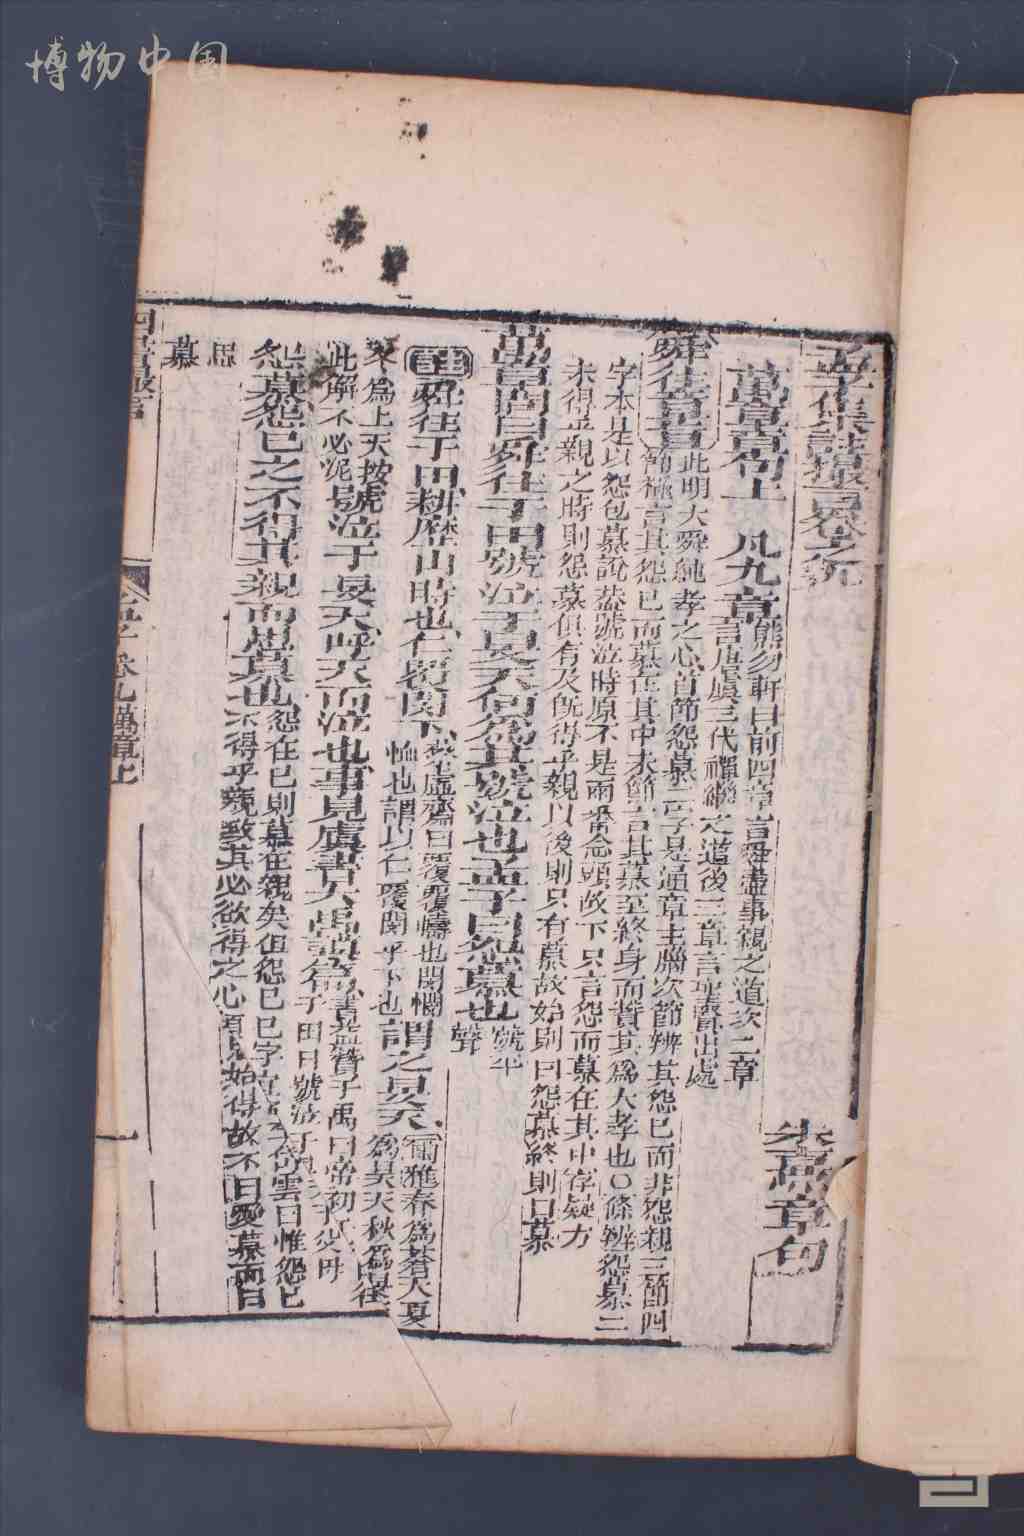 博物中国
孟子集註卷之九
朱熹章句
萬章章句上 凡九章 熊勿軒曰前四章言舜盡事親之道次二章
言唐虞三代禪繼之道後三章言聖賢出處
舜往章旨 此明大舜純孝之心首節怨慕二字是通章主腦次節辨其怨己而非怨親三節四
節極言其怨己而慕在其中末節言其慕至終身而贊其為大孝也○條辨怨慕二
字本是以怨包慕說葢號泣時原不是兩番念頭故下只言怨而慕在其中存疑方
未得乎親之時則怨慕俱有及旣得乎親以後則只有慕故始則曰怨慕終則曰慕
萬章問曰舜往于田號泣于旻天何為其號泣也孟子曰怨慕也 號平
聲
註 舜往于田耕歷山時也仁覆閔下 蔡虛齋曰覆覆幬也閔憫
恤也謂以仁覆閔乎下也 謂之旻天 爾雅春為蒼天夏
為昊天秋為旻天
冬為上天按
此解不必泥 號泣于旻天呼天而泣也事見虞書大禹謨篇 書益贊于禹曰帝初
于田日號泣于旻天于父母
怨慕怨己之不得其親而思慕也 怨在己則慕在親矣但怨己己字
雲曰惟怨己
不得乎親致其必欲得之心 始得故不曰愛慕而曰
思
慕
卷九萬章上
一